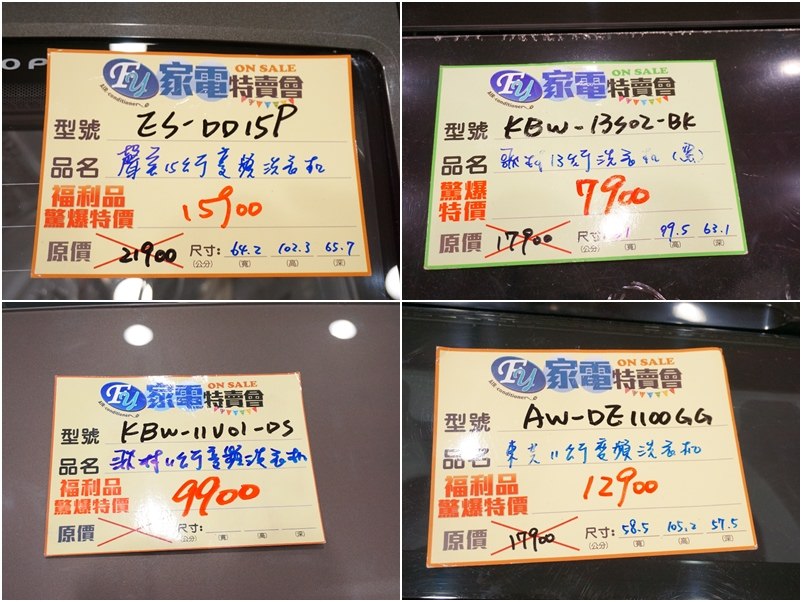 OP
FY 家電特賣會 ON SALE
AIR conditioner
型號 ES-DD15P
品名 聲寶15公斤變頻洗衣機
福利品
驚爆特價 15900
原價 21900 尺寸: 64.2 102.3 65.7
(公分) (寬) (高) (深)
FY 家電特賣會 ON SALE
AIR conditioner
型號 KBW-13S02-BK
品名 歌林13公斤洗衣機(黑)
驚爆
特價 7900
原價 17900 尺寸: 99.5 63.1
(公分) (寬) (高) (深)
FY 家電特賣會 ON SALE
AIR conditioner
型號 KBW-11V01-DS
品名 歌林11公斤變頻洗衣機
福利品
驚爆特價 9900
原價 尺寸:
(公分) (寬) (高) (深)
FY 家電特賣會 ON SALE
AIR conditioner
型號 AW-DE1100GG
品名 東芝11公斤變頻洗衣機
福利品
驚爆特價 12900
原價 17900 尺寸: 58.5 105.2 57.5
(公分) (寬) (高) (深)